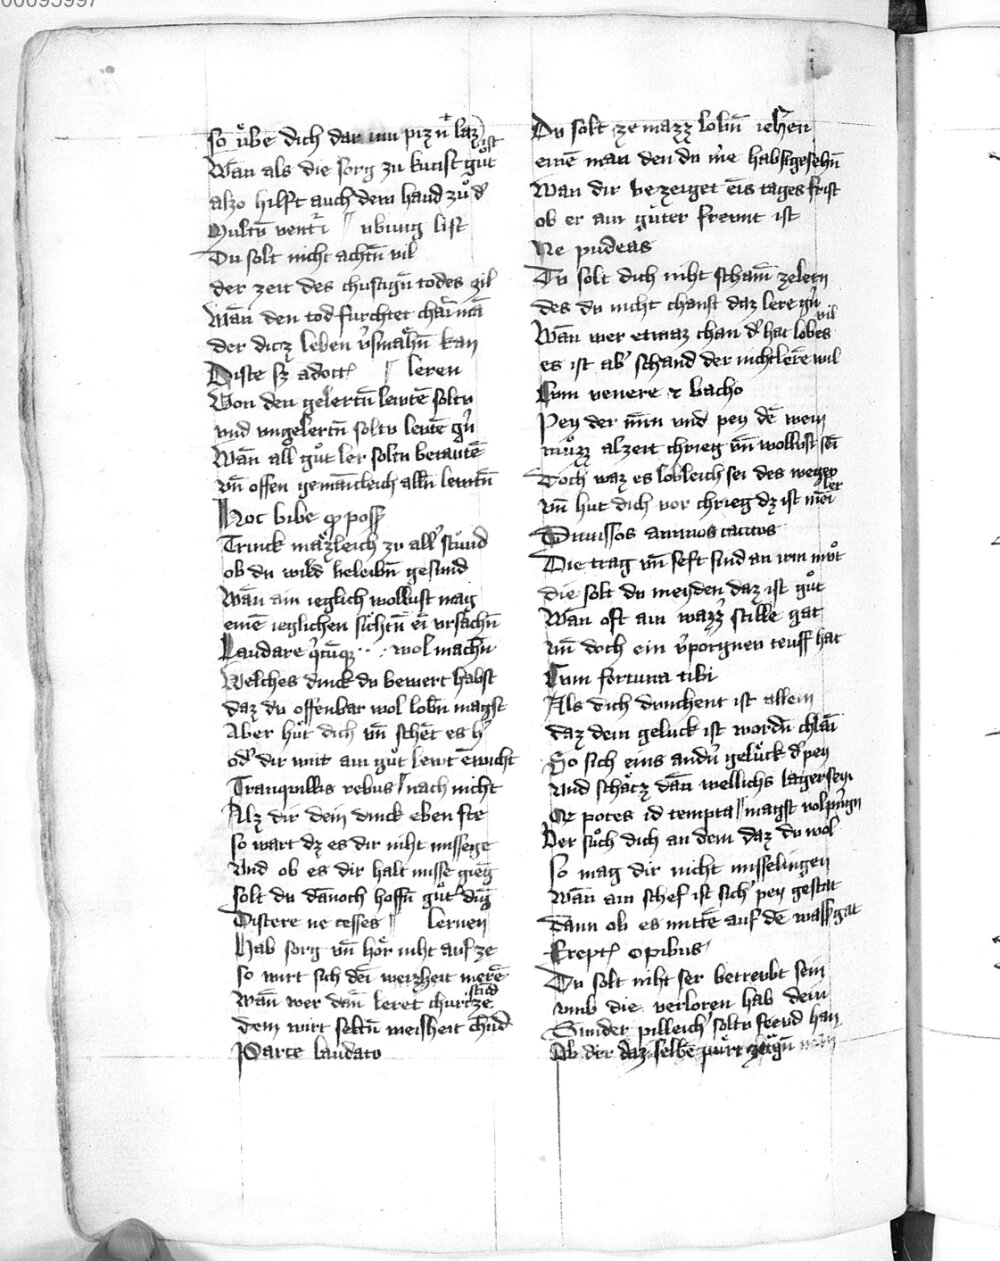 00095997
so übe dich dar inn piz nᵗ laz
Wañ als die sorg zu kunst gůt ist
alzo hilft auch dem hand zů dˢ
Multũ ventᵗi // ubung list
Du solt nicht achtñ vil
der zeit des chuftigñ todes zil
Wañ den tod furchtet chaī mā
der dicz leben ṽsmahñ kan
Disce sz a doctꝭ // leren
Von den gelertñ lewtē soltu
vnd vngelertñ soltu lewtē
Wañ all gůt ler soltu betautē
vñ offen gemaīcleich allñ lewtñ
Hoc bibe qͦ poss
Trinck mäzleich zu allˢ stund
ob du wild beleibñ gesund
Wañ ain ieglich wollust mag
einē ieglichen sichtñ eī vrsachñ
Laudare qͥcūqꝫ ·· wol machñ
Welches dinck du bewert habst
daz du offenbar wol lobñ magst
Aber hüt dich vñ schet es
odˢ dir wirt ain gůt lewt ēwicht
Tranquillis rebus // nach nicht
Alz dir dein dinck eben ste
so wart dz es dir niht missege
Vnd ob es dir halt misse gieng
solt du dānoch hoffñ gůtˢ ding
Discere ne cesses // lernen
Hab sorg vñ hör niht auf ze
so wirt sich deī weizheit merē
Wañ wer dañ leret churcze stūd
dem wirt seltñ weisheit chūd
Parce laudato
Du solt ze mazz lobñ iehen
einē man den du nīe habst gesehñ
Wan dir bezeiget eīs tages frist
ob er ain guter frewnt ist
Ne pudeas
Du solt dich niht schamē zelern
des du nicht chanst daz lere
Wañ wer etwaz chan dˢ hat lobes vil
es ist abˢ schand der nicht lerē wil
Cum venere & bacho
Pey der mīn vnd pey dē wein
můzz alzeit chrieg vñ wollust sei
Doch waz es lobleich sei des weger
vñ hut dich vor chrieg dz ist meī ler
Dimissos animos tacitos
Die trag vñ seft sind an irm můt
die solt du meyden daz ist gůt
Wan oft ain wazzˢ stille gat
vñ doch ein ṽporgnev teuff hat
Cum fortuna tibi
Als dich dunchent ist allein
daz dein gelück ist wordñ chlaī
So sich eins andˢñ gelück dˢpey
Vnd schätz dañ wellichs lagersey
Qͦ potes id tempta // magst volpringñ
Ver such dich an dem daz du wol
so mag dir nicht misselingen
Wañ ain schef ist sichˢ pey gestat
dann ob es mittē auf dē wassˢ gat
Ereptꝭ opibus
Du solt niht ser betrubt sein
vmb die verloren hab dein
Sunder pilleich soltu frewd han
Ob dir daz selbē